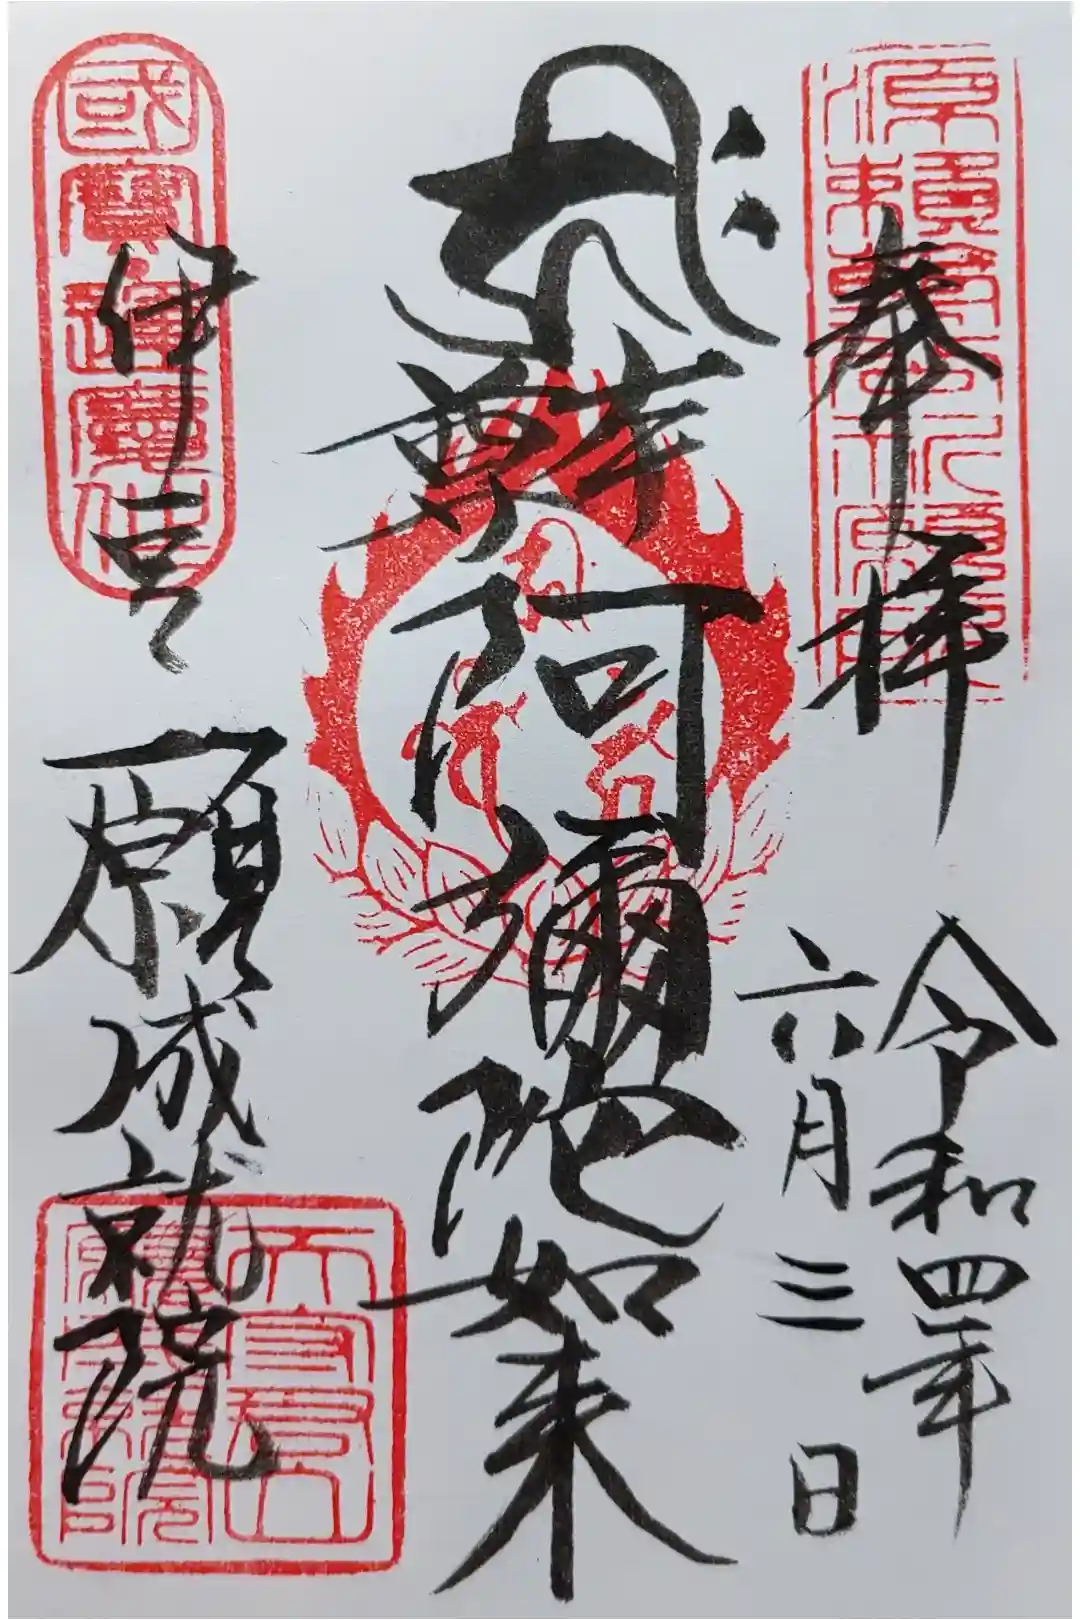 奉拝
令和四年
六月三日
本尊
阿彌陀如来
伊豆
願成就院
國寶運慶仏